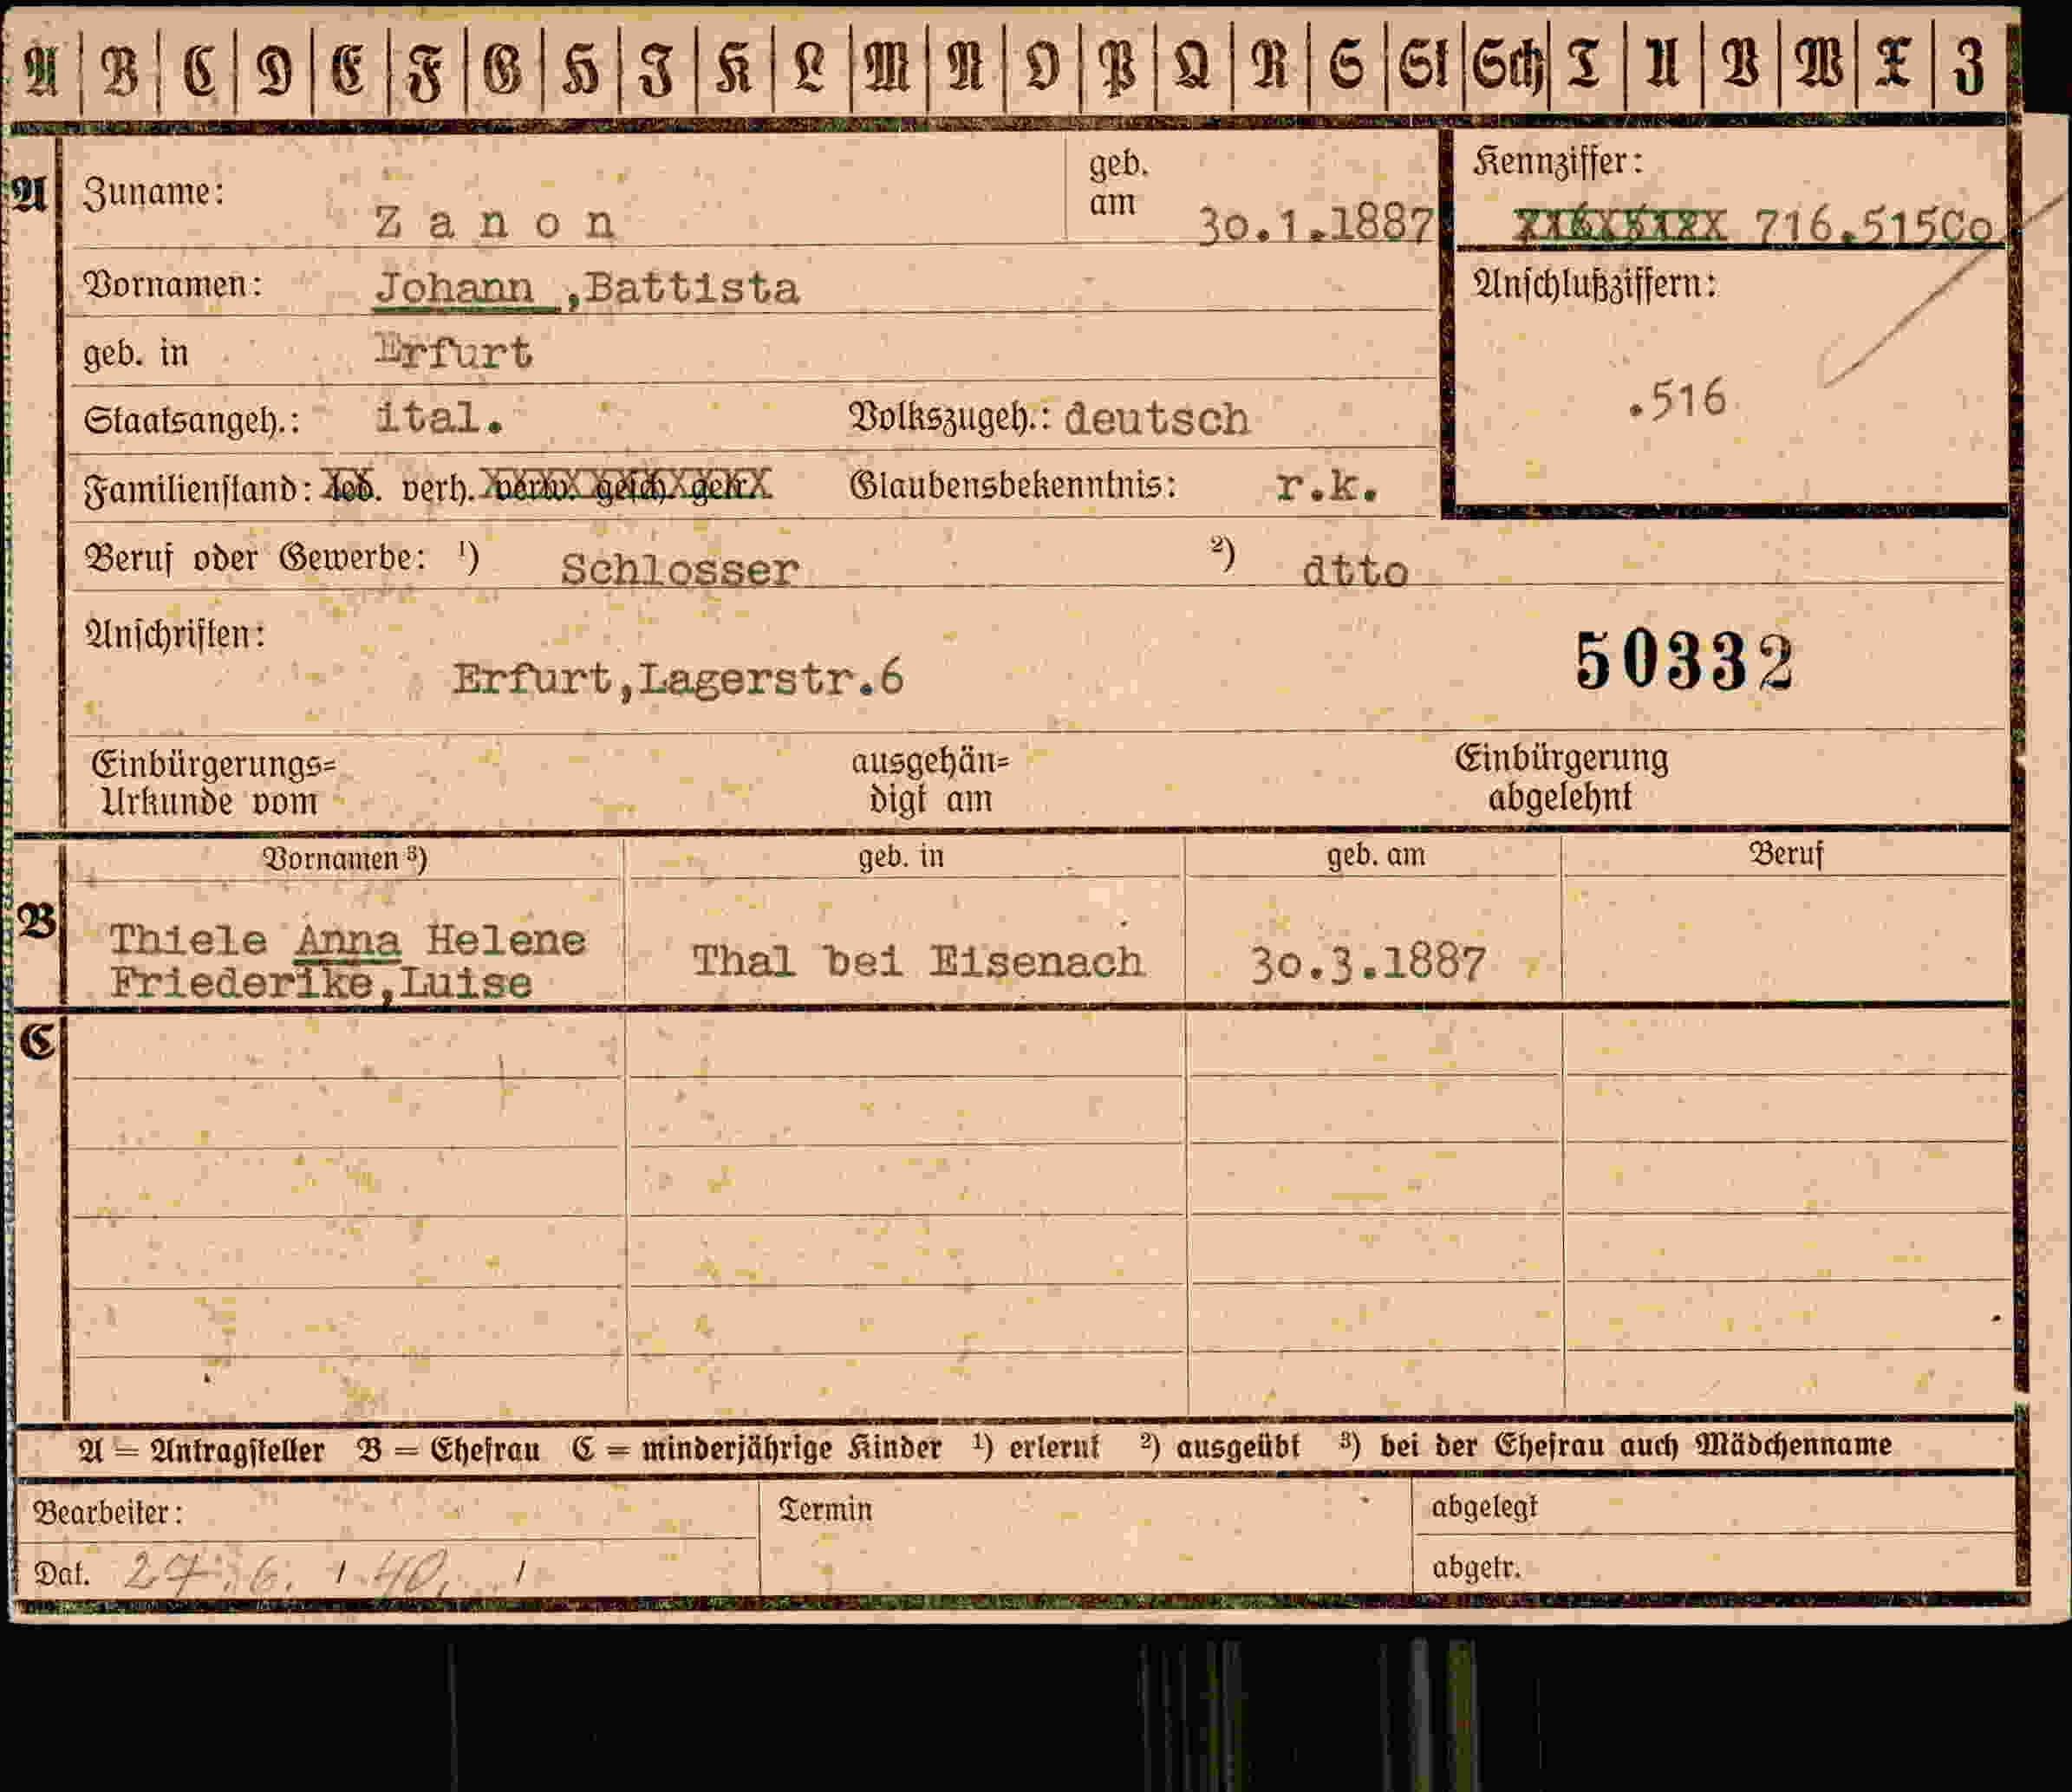 A B C D E F G H I K L M N O P Q R S St Sch T U V W X Z
A Zuname: Zanon geb. am 30.1.1887 Kennziffer: 716.515Co
Vornamen: Johann ,Battista Anschlußziffern:
geb. in Erfurt
Staatsangeh.: ital. Volkszugeh.: deutsch .516
Familienstand: led. verh. verw. gesch. getr. Glaubensbekenntnis: r.k.
Beruf oder Gewerbe: ¹) Schlosser ²) dtto
Anschriften:
Erfurt,Lagerstr.6 50332
Einbürgerungs=
Urkunde vom
ausgehän=
digt am
Einbürgerung
abgelehnt
Vornamen ³) geb. in geb. am Beruf
B Thiele Anna Helene
Friederike,Luise
Thal bei Eisenach 30.3.1887
C
A = Antragsteller B = Ehefrau C = minderjährige Kinder ¹) erlernt ²) ausgeübt ³) bei der Ehefrau auch Mädchenname
Bearbeiter: Termin abgelegt
Dat. 27. 6. / 40. / abgetr.